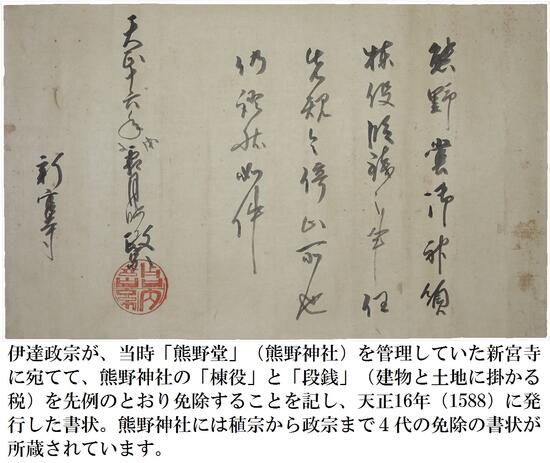 熊野堂御神領
棟役段銭之事任
先規令停止所也
仍證状如件
天正十六年霜月 政宗
新宮寺
伊達政宗が、当時「熊野堂」（熊野神社）を管理していた新宮寺
に宛てて、熊野神社の「棟役」と「段銭」（建物と土地に掛かる
税）を先例のとおり免除することを記し、天正16年（1588）に発
行した書状。熊野神社には稙宗から政宗まで４代の免除の書状が
所蔵されています。